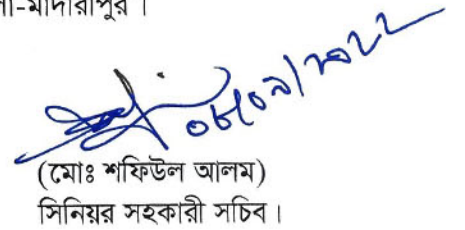 -মাদারীপুর।
০৮/০৯/২০২২
(মোঃ শফিউল আলম)
সিনিয়র সহকারী সচিব।